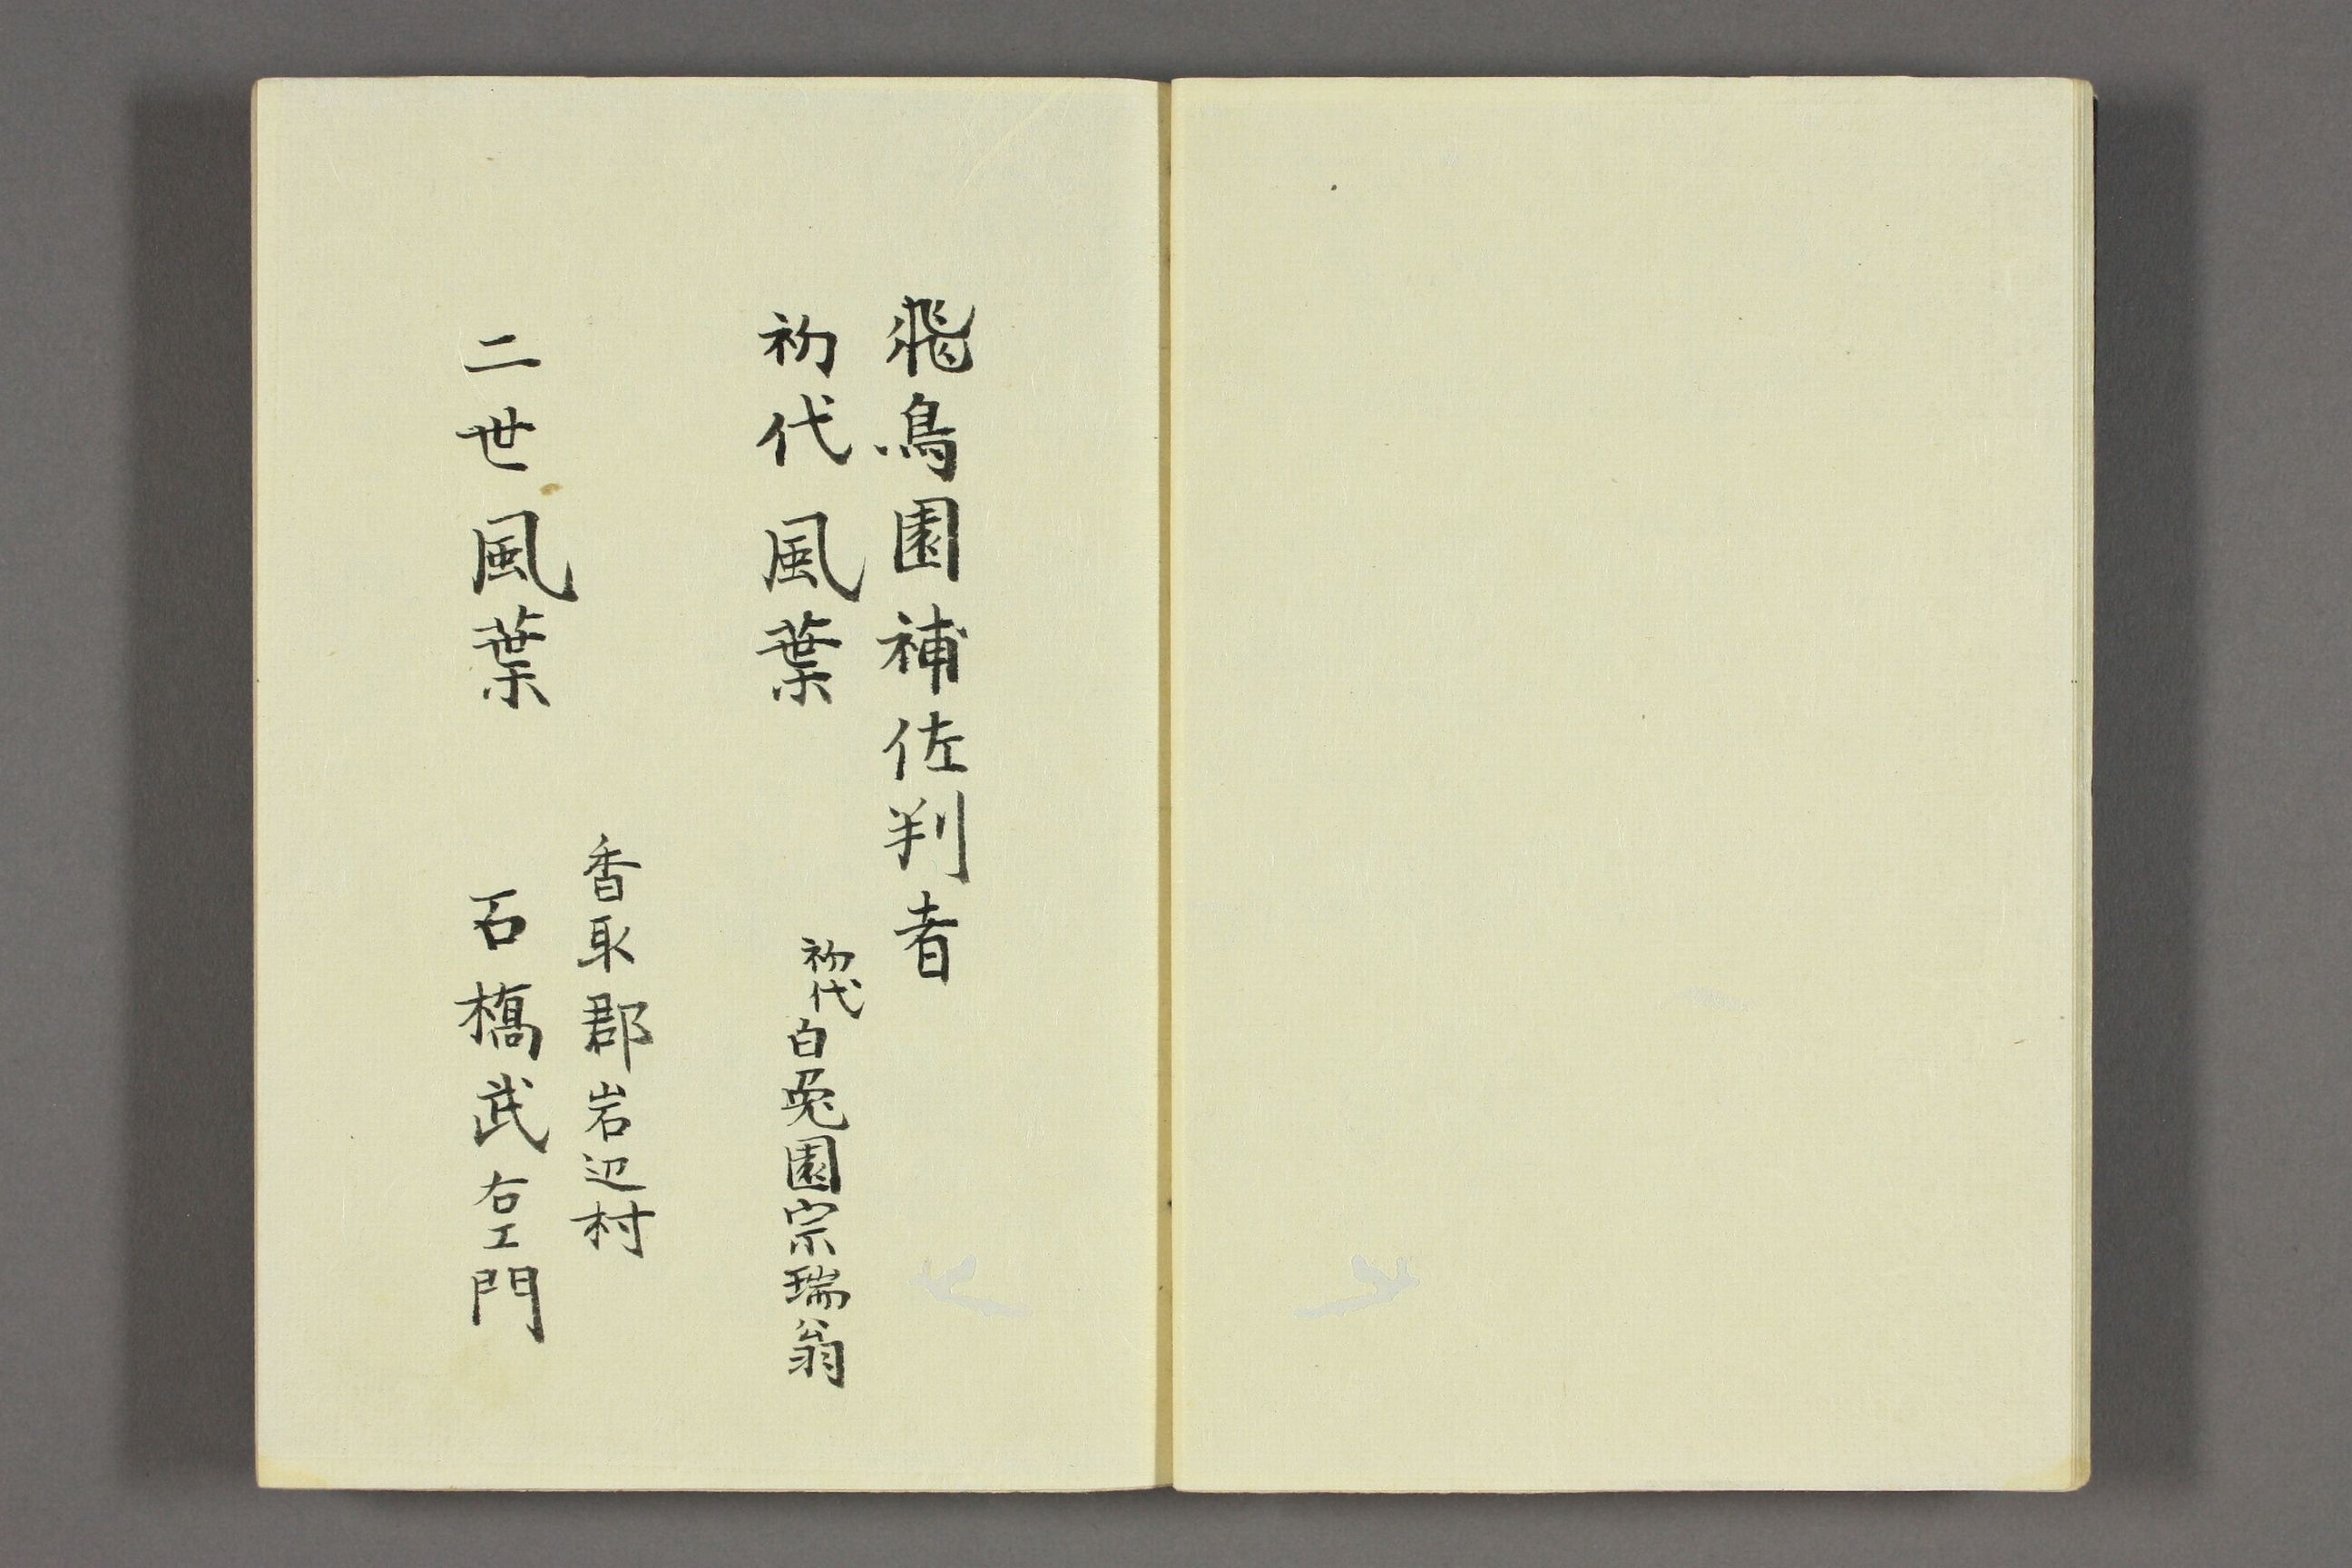 飛鳥園補佐判者
初代風葉 初代白兎園宗瑞翁
香取郡岩辺村
二世風葉 石橋武右エ門